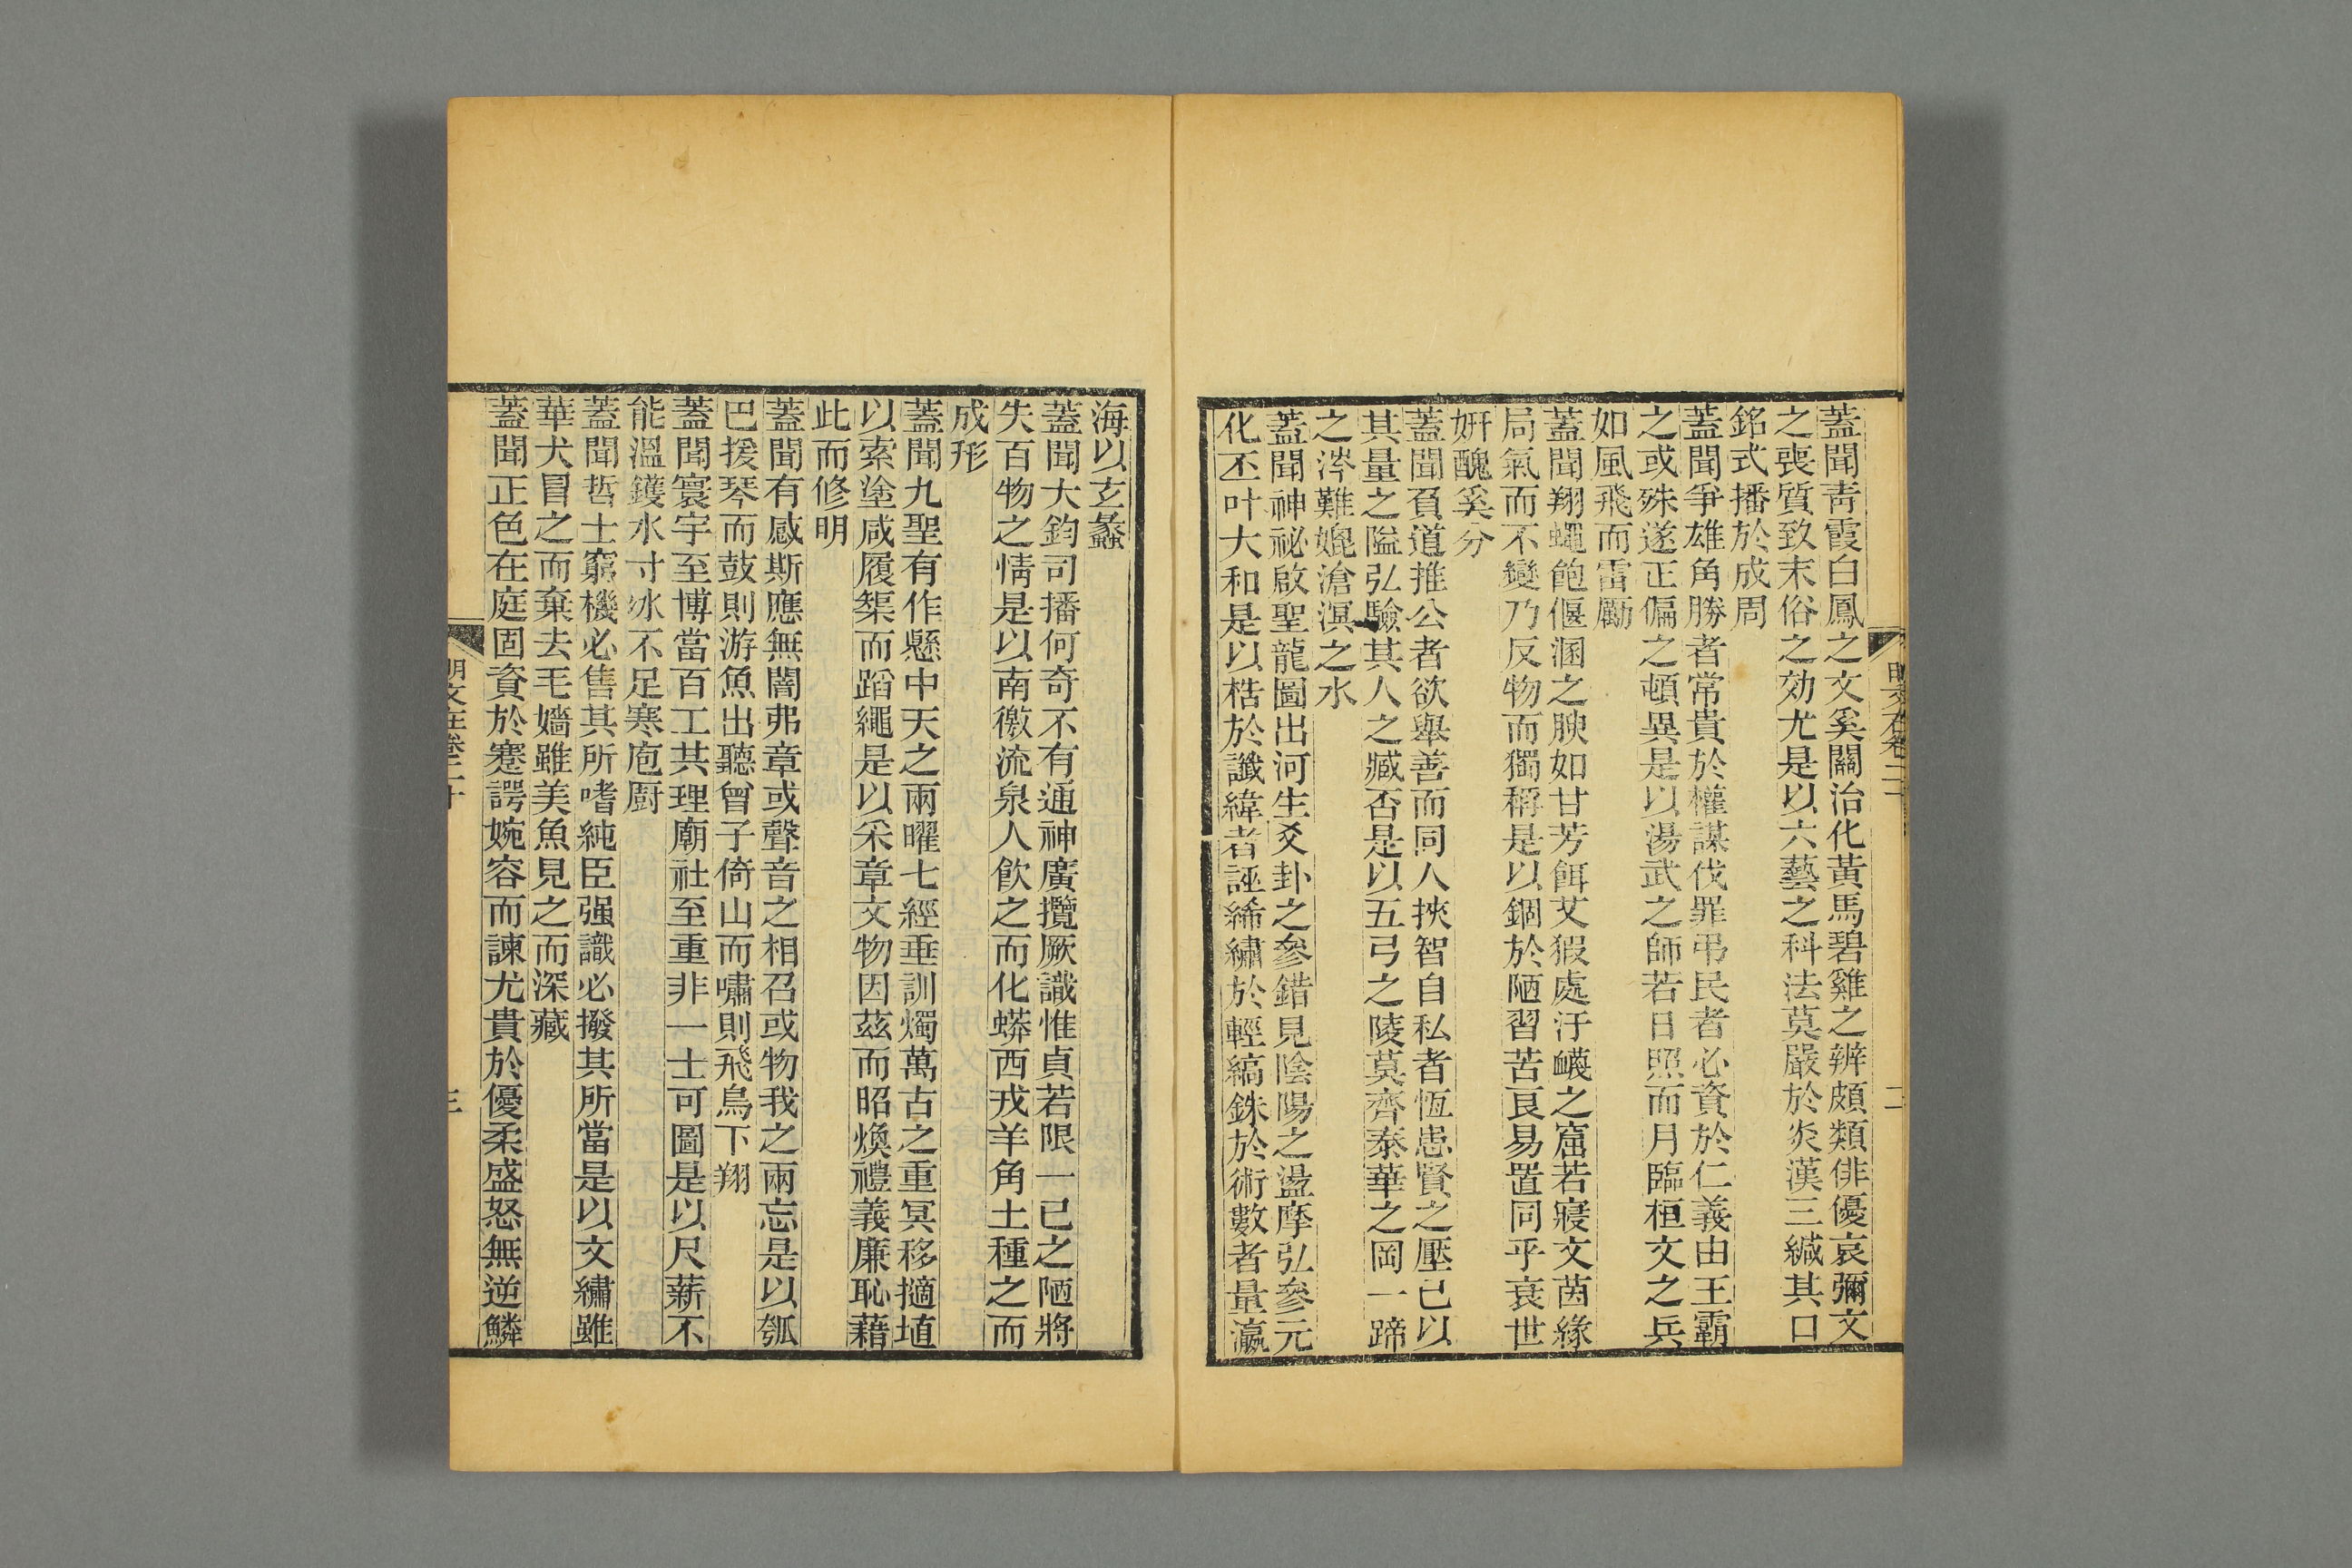 蓋聞靑霞白鳳之文奚關治化黃馬碧雞之辨頗類俳優哀彌文
之喪質致末俗之効尤是以六藝之科法莫嚴於炎漢三緘其口
銘式播於成周
蓋聞爭雄角勝者常貴於權謀伐罪弔民者必資於仁義由王霸
之或殊遂正偏之頓異是以湯武之師若日照而月臨桓文之兵
如風飛而雷勵
蓋聞翔蠅飽偃溷之腴如甘芳餌艾猳處汙衊之窟若寢文茵緣
局氣而不變乃反物而獨稱是以錮於陋習苦艮易置同乎衰世
姸醜奚分
蓋聞負道推公者欲舉善而同人挾智自私者恆恚賢之壓己以
其量之隘弘驗其人之臧否是以五弓之陵莫齊泰華之岡一蹄
之涔難媲滄溟之水
蓋聞神祕啟聖龍圖出河生爻卦之參錯見陰陽之盪摩弘參元
化丕叶大和是以梏於讖緯者誣絺繡於輕縞銖於術數者量瀛
海以玄蠡
蓋聞大鈞司播何奇不有通神廣攬厥識惟貞若限一已之陋將
失百物之情是以南徼流泉人飮之而化蟒西戎羊角土種之而
成形
蓋聞九聖有作懸中天之兩曜七經垂訓燭萬古之重冥移擿埴
以索塗咸履榘而蹈繩是以采章文物因茲而昭煥禮義廉恥藉
此而修明
蓋聞有感斯應無闇弗章或聲音之相召或物我之兩忘是以瓠
巴援琴而鼓則游魚出聽曾子倚山而嘯則飛鳥下翔
蓋聞寰宇至博當百工其理廟社至重非一士可圖是以尺薪不
能溫鑊水寸冰不足寒庖廚
蓋聞哲士窮機必售其所嗜純臣强識必撥其所當是以文繡雖
華犬冒之而棄去毛嬙雖美魚見之而深藏
蓋聞正色在庭固資於蹇諤婉容而諫尤貴於優柔盛怒無逆鱗
明文在卷二十
三